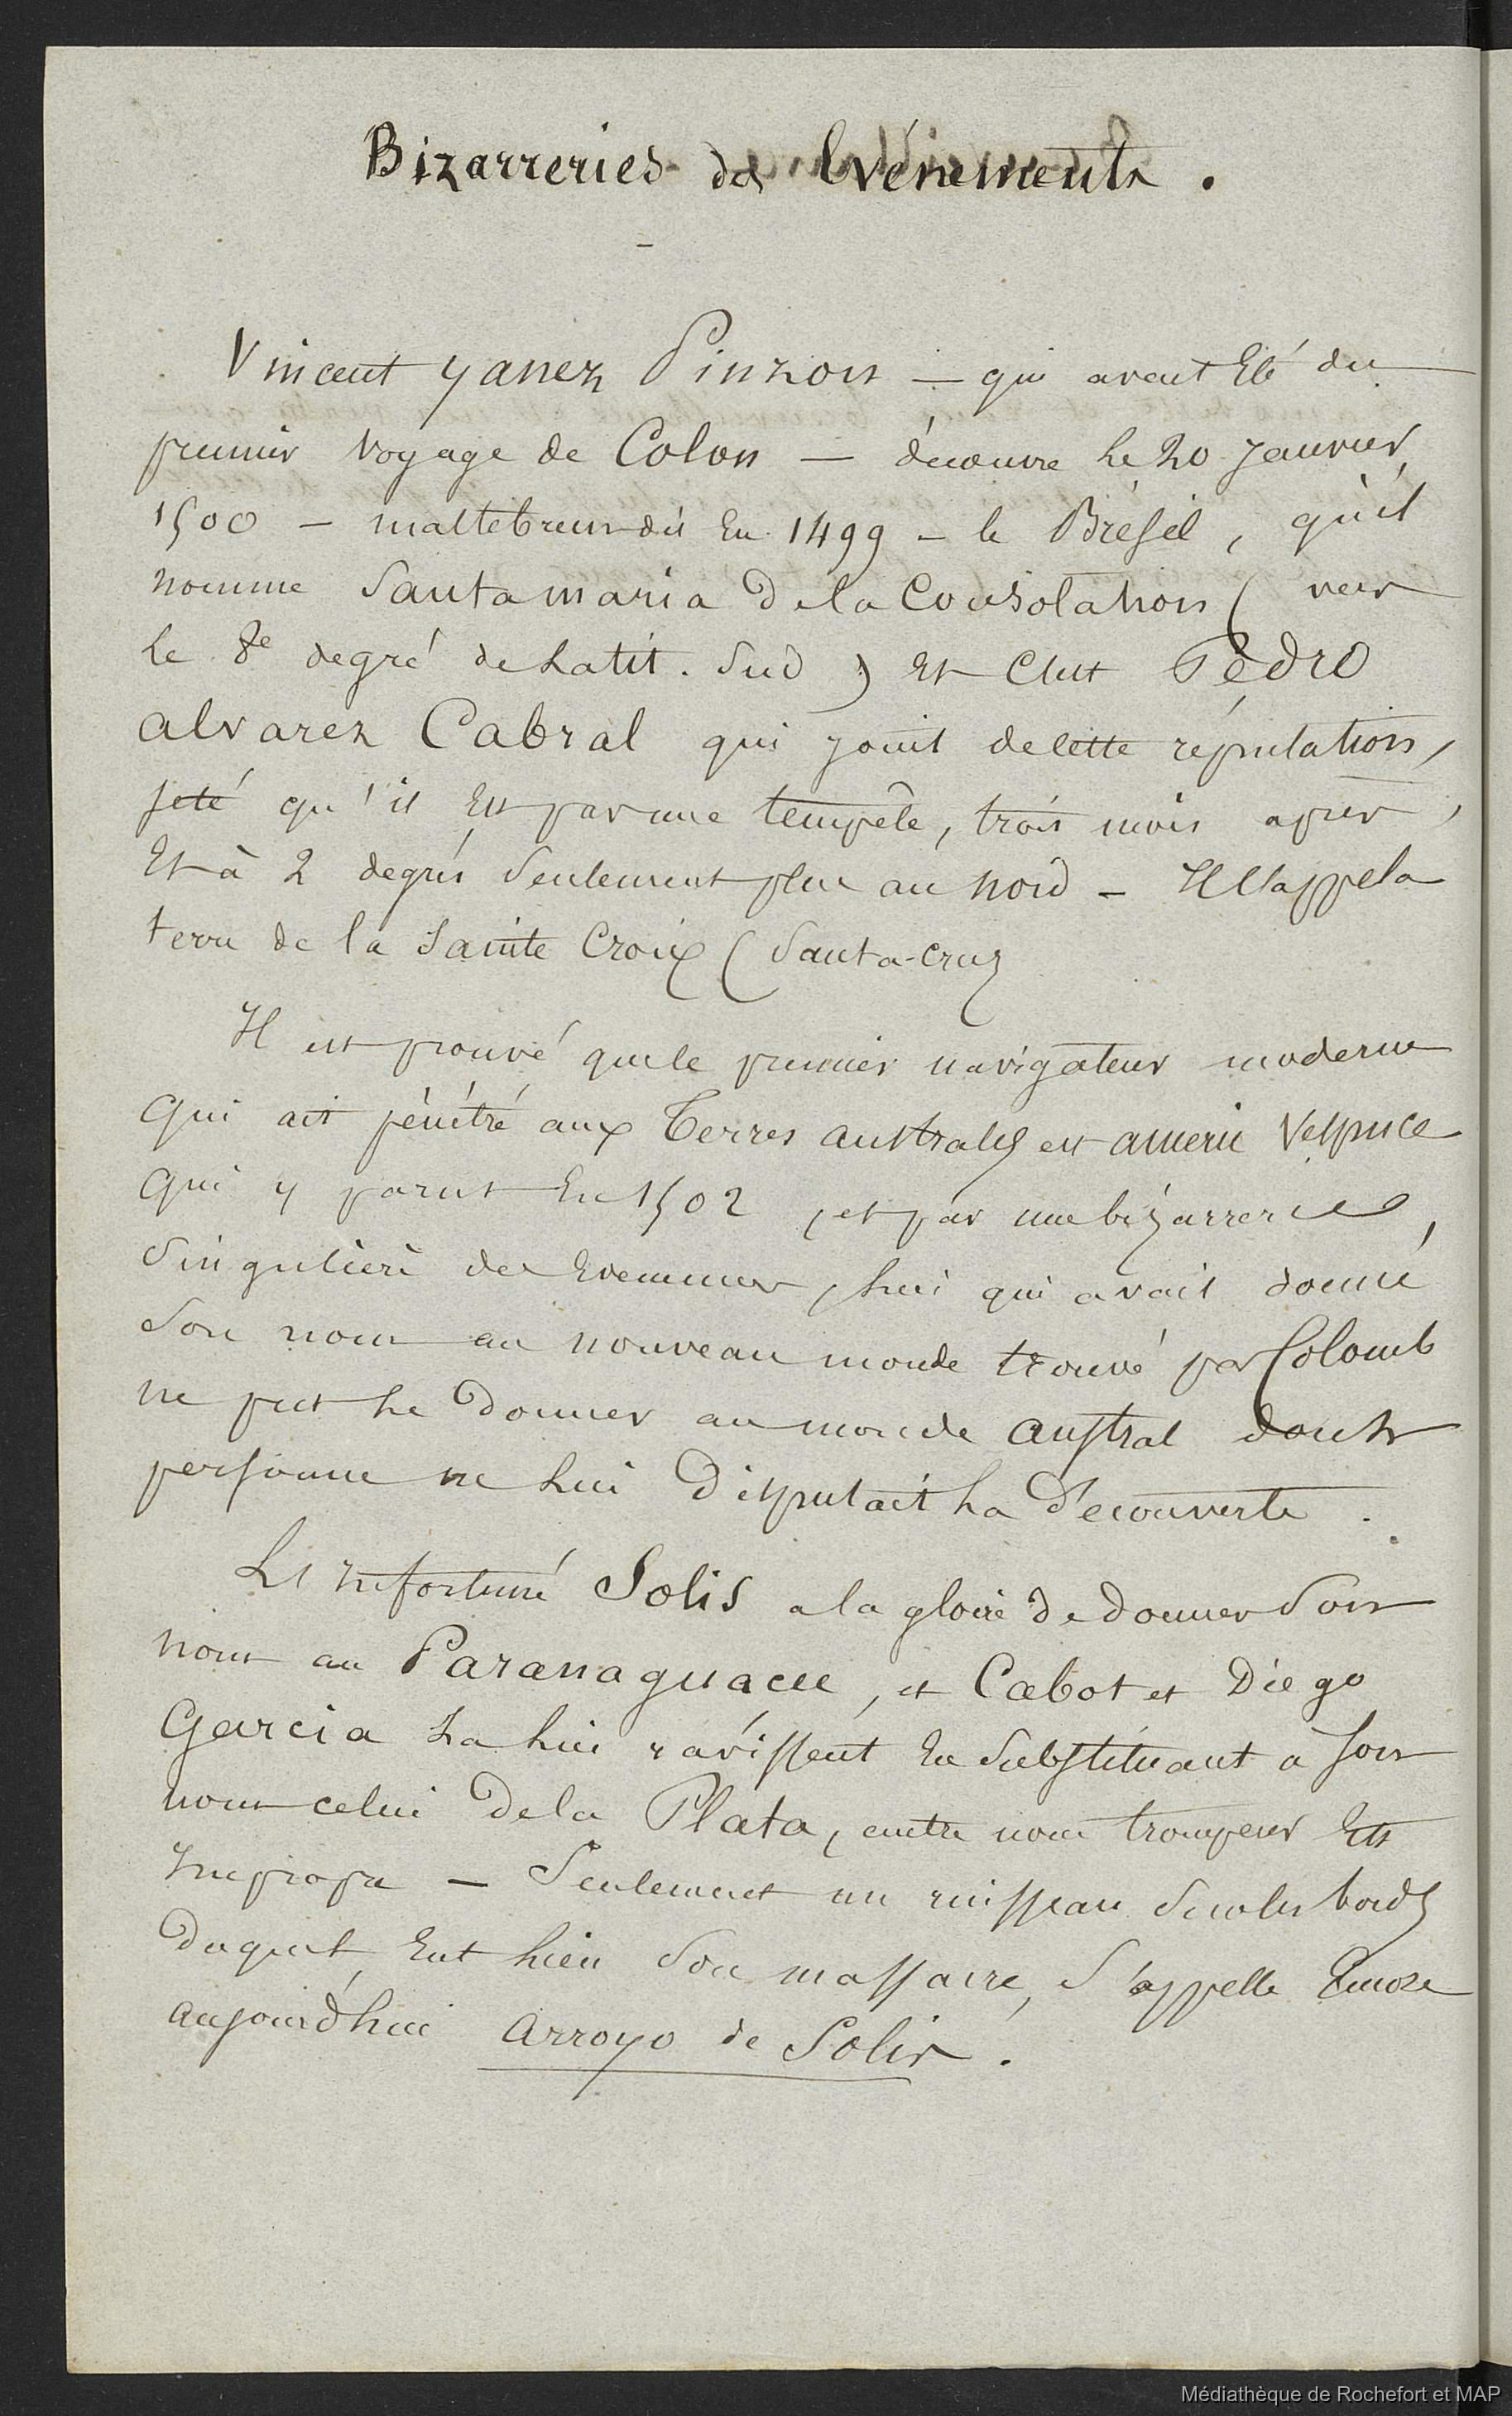 Bizarreries des Evénements .
Vincent yanez Pinzon — qui avait Eté du
premier voyage de Colon — découvre le 20 Janvier
1500 — maltebrun dit En 1499 — le Brésil, qu'il
nomme Santa maria de la Consolation ( vers
le 8e degré de Latit. Sud ) Et C'est Pédro
alvarez Cabral qui jouit de cette réputation,
jeté qu'il Est par une tempête, trois mois après,
Et à 2 degrés Seulement plus au nord — Il l'appela
terre de la Sainte Croix ( Santa-Cruz
Il est prouvé que le premier navigateur moderne
qui ait pénétré aux Terres australes est améric Vespuce
qui y parut En 1502 , et par une bizarrerie,
Singulière des Evenemens, lui qui avait donné
Son nom au nouveau monde trouvé par Colomb
ne put le Donner au monde austral dont
personne ne lui Disputait la Découverte .
L'Infortuné Solis a la gloire de donner Son
nom au Paranaguacu, et Cabot et Diego
Garcia la lui ravissent En Substituant a son
nom celui De la Plata, nom trompeur Et
Impropre — Seulement un ruisseau Sur les bords
duquel Eut lieu Son massacre, S'appelle Encore
aujourd'hui Arroyo de Solis .
Médiathèque de Rochefort et MAP